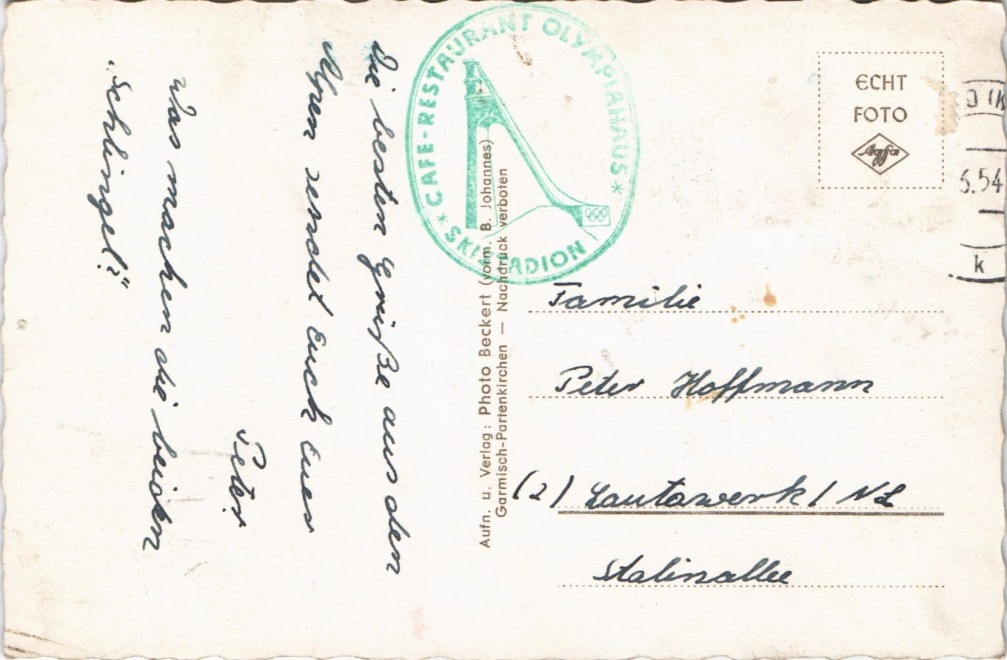 Die besten Grüße aus den
Alpen sendet Euch Euer
Peter
Was machen die beiden
"Schlingel?"
* CAFE-RESTAURANT OLYMPIAHAUS *
SKI-STADION
Aufn. u. Verlag: Photo Beckert (vorm. B. Johannes)
Garmisch-Partenkirchen — Nachdruck verboten
ECHT
FOTO
Agfa
6.54
k
Familie
Peter Hoffmann
(2) Lautawerk / NL
Stalinallee